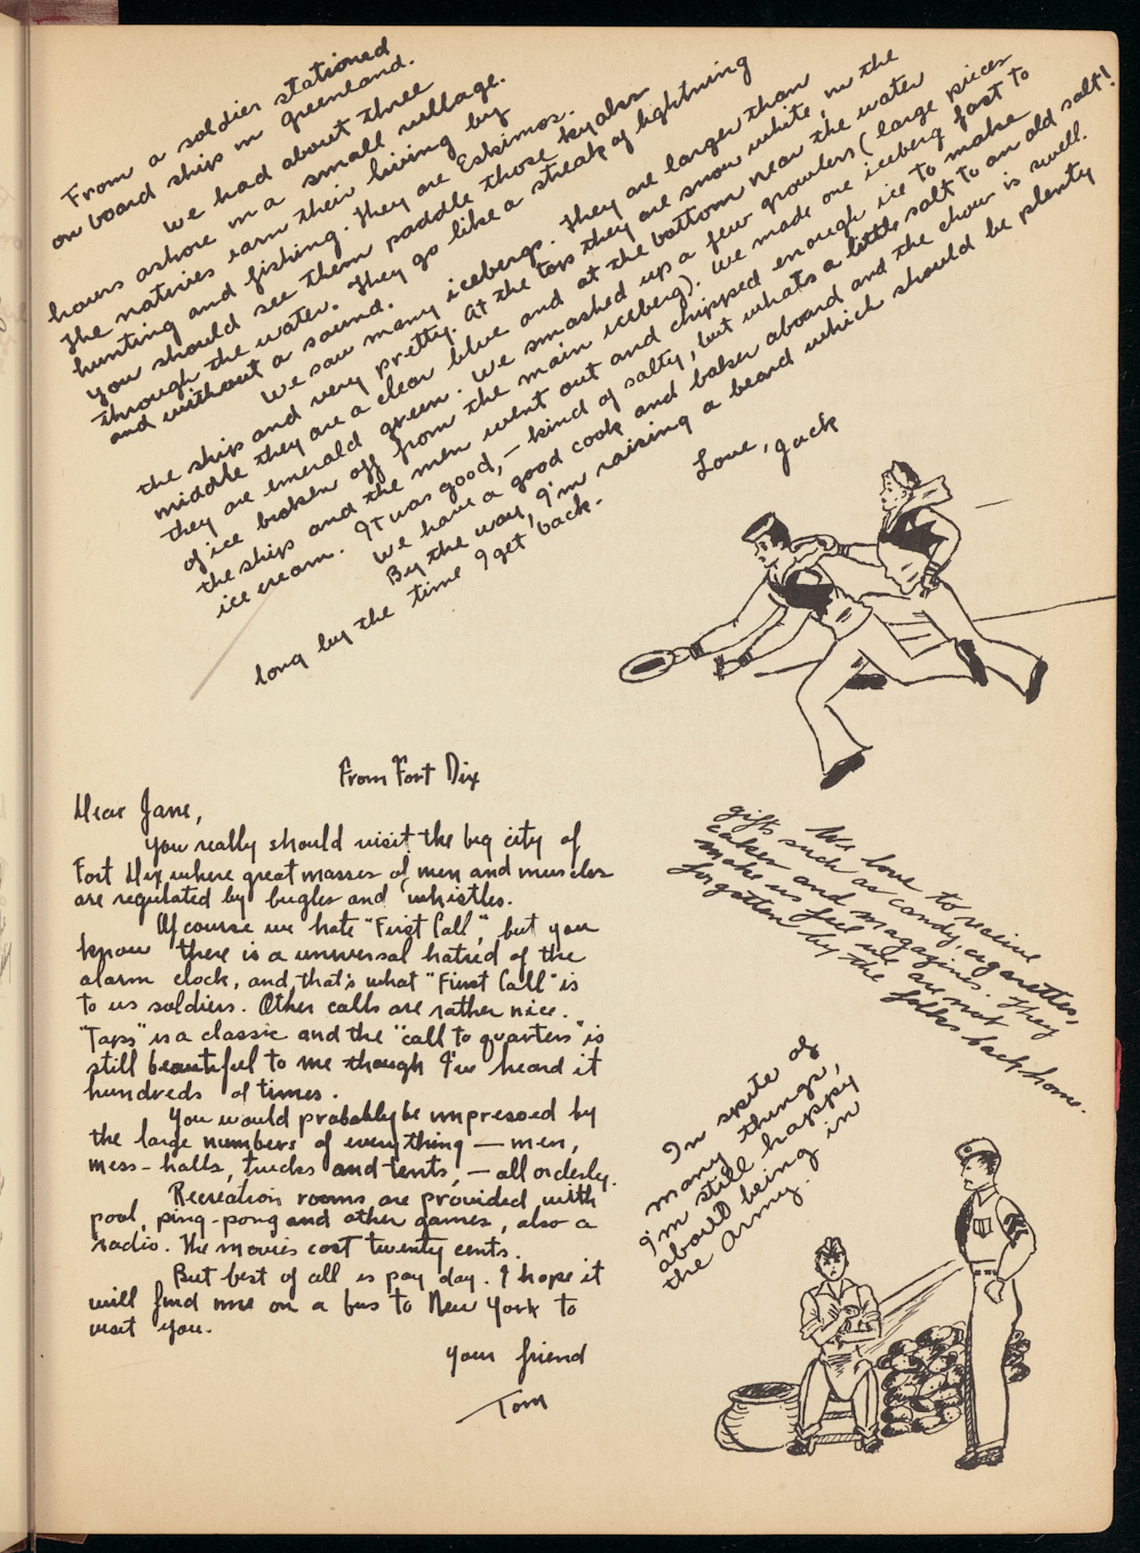 From a soldier stationed
on board ship in Greenland.
We had about three
hours ashore in a small village.
The natives earn their living by
hunting and fishing. They are Eskimos.
You should see them paddle those kyaks
through the water. They go like a streak of lightning
and without a sound.
We saw many icebergs. They are larger than
the ship and very pretty. At the top they are snow white, in the
middle they are a clear blue and at the bottom near the water
they are emerald green. We smashed up a few growlers (large pieces
of ice broken off from the main iceberg). We made one iceberg fast to
the ship and the men went out and chipped enough ice to make
ice cream. It was good, – kind of salty, but what's a little salt to an old salt!
We have a good cook and baker aboard and the chow is swell.
By the way, I'm raising a beard which should be plenty
long by the time I get back.
Love, Jack
From Fort Dix
Dear Jane,
You really should visit the big city of
Fort Dix, where great masses of men and muscles
are regulated by bugles and whistles.
Of course we hate "First Call", but you
know there is a universal hatred of the
alarm clock, and that's what "First Call" is
to us soldiers. Other calls are rather nice.
"Taps" is a classic and the "call to quarters" is
still beautiful to me though I've heard it
hundreds of times.
You would probably be impressed by
the large numbers of everything — men,
mess-halls, trucks and tents, — all orderly.
Recreation rooms are provided with
pool, ping-pong and other games, also a
radio. The movies cost twenty cents.
But best of all is pay day. I hope it
will find me on a bus to New York to
visit you.
Your friend
Tom
We love to receive
gifts such as candy, cigarettes,
cakes and magazines. They
make us feel we are not
forgotten by the folks back home.
In spite of
many things,
I'm still happy
about being in
the army.